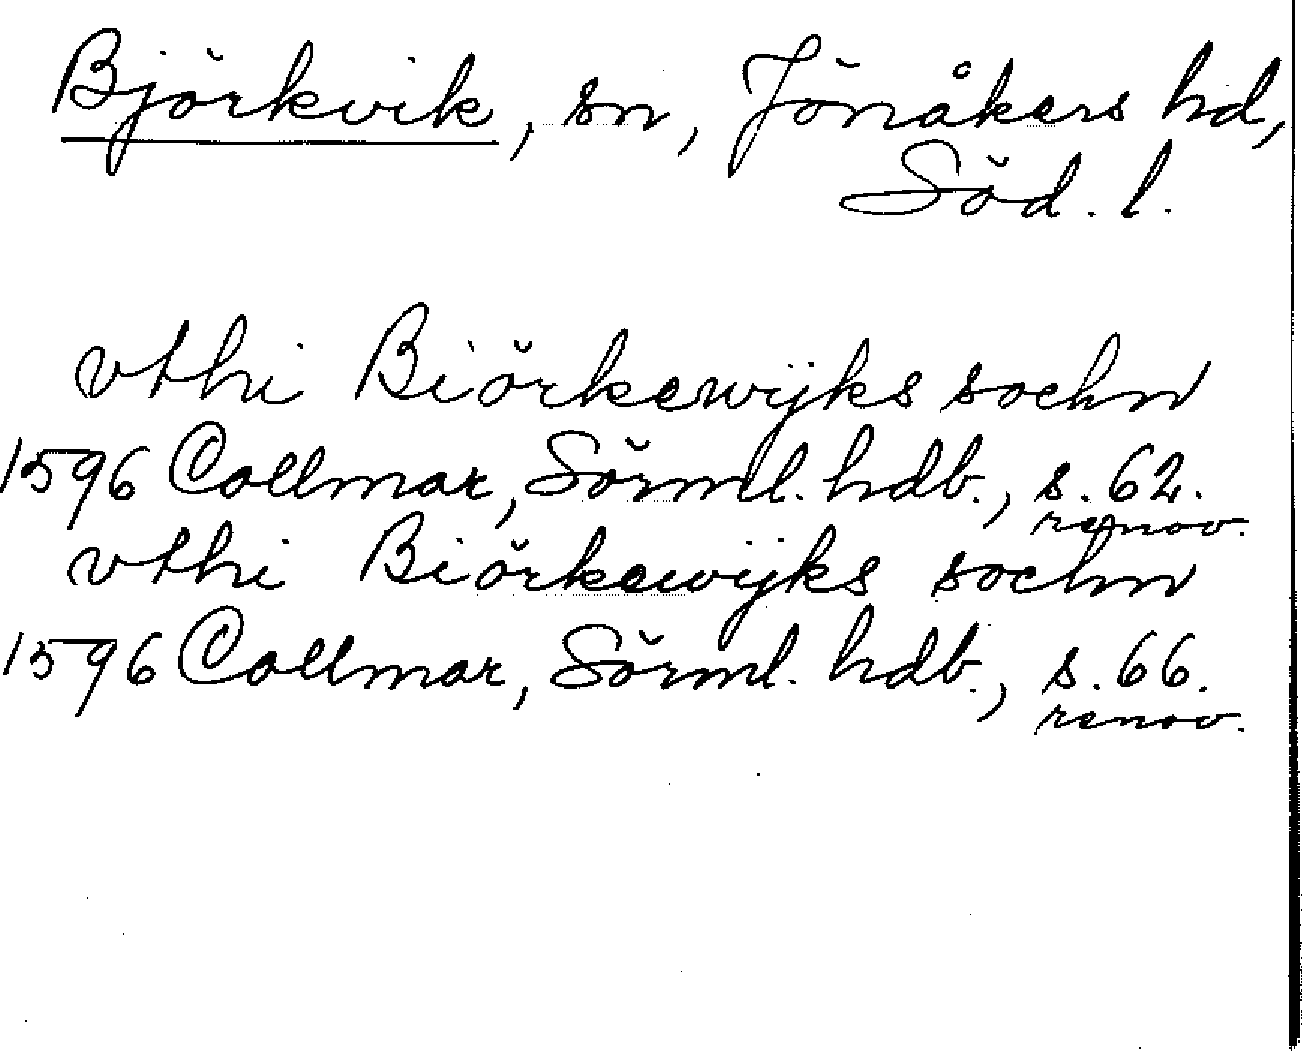 Björkvik, sn, Jönåkers hd,
Söd. l.
vthi Biörkewijks sochn
1596 Collmar, Sörml. hdb., s. 62.
renov.
vthi Biörkewijks sochn
1596 Collmar, Sörml. hdb., s. 66.
renov.